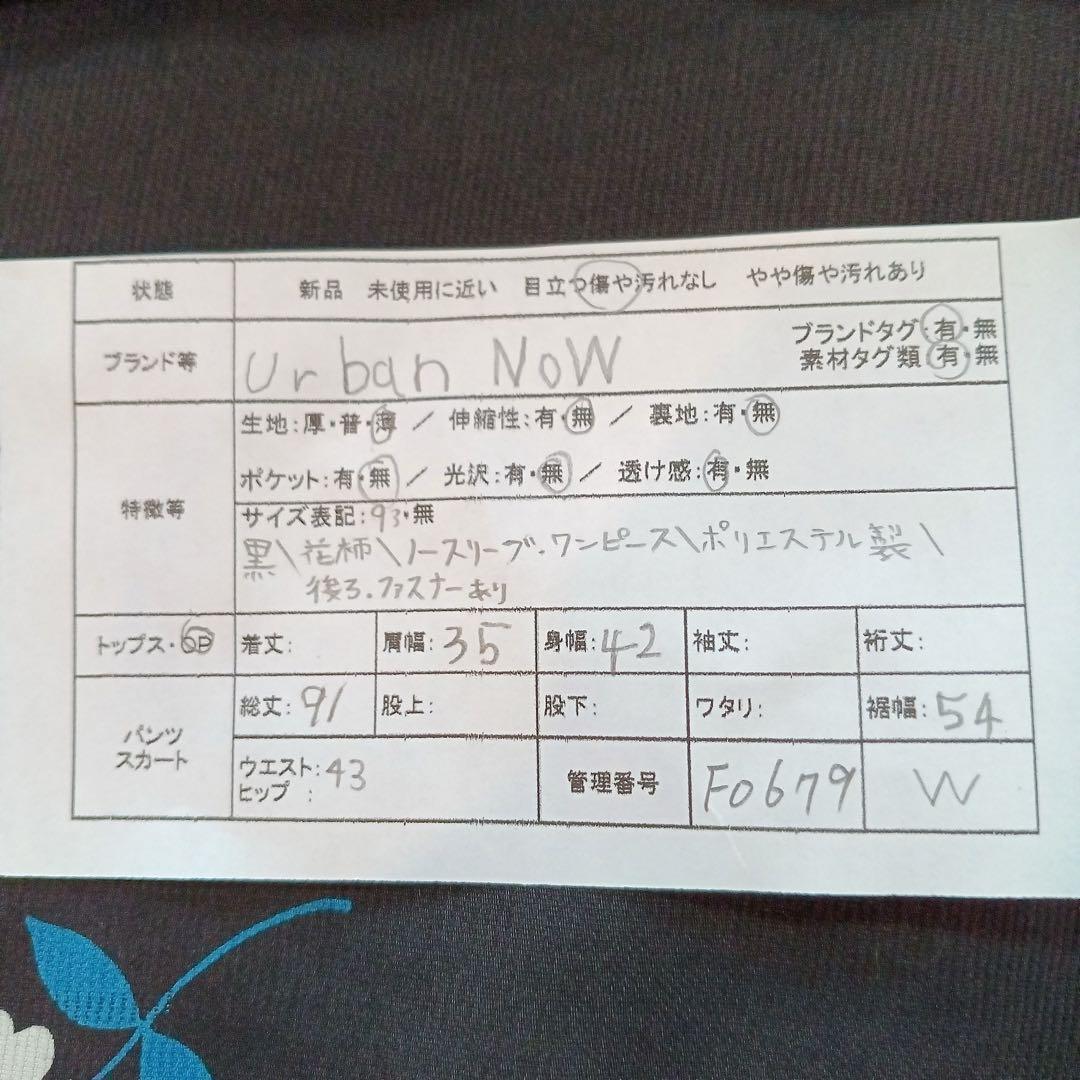 状態 新品 未使用に近い 目立つ傷や汚れなし やや傷や汚れあり
ブランド等 Urban NoW ブランドタグ:有・無
素材タグ類 有・無
特徴等 生地:厚・普・薄 / 伸縮性:有・無 / 裏地:有・無
ポケット:有・無 / 光沢:有・無 / 透け感:有・無
サイズ表記:93・無
黒\花柄\ノースリーブ.ワンピース\ポリエステル製\
後ろ.ファスナーあり
トップス・OP 着丈: 肩幅:35 身幅:42 袖丈: 裄丈:
パンツ スカート 総丈:91 股上: 股下: ワタリ: 裾幅:54
ウエスト:43
ヒップ : 管理番号 F0679 W